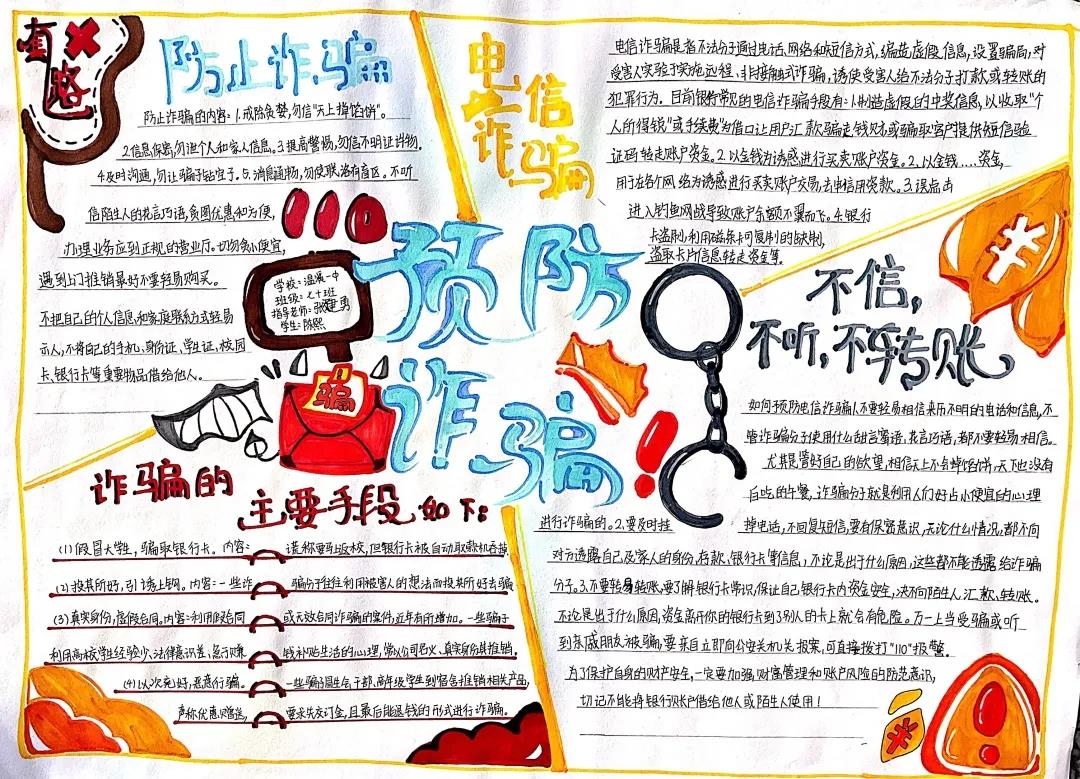 套路
防止诈骗
防止诈骗的内容:1.戒除贪婪,勿信"天上掉馅饼"。
2.信息保密,勿泄个人和家人信息。3.提高警惕,勿信不明证涉物.
4.及时沟通,勿让骗子钻空子。5.消息通畅,勿使联络有盲区。不听
信陌生人的花言巧语,贪图优惠和方便,
办理业务应到正规的营业厅。切勿贪小便宜,
遇到上门推销最好不要轻易购买。
不把自己的个人信息和家庭联系方式轻易
示人,不将自己的手机、身份证、学生证、校园
卡、银行卡等重要物品借给他人。
电信诈骗
电信诈骗是者不法分子通过电话、网络和短信方式,编造虚假信息,设置骗局,对
受害人实验于实施远程、非接触式诈骗,诱使受害人给不法分子打款或转账的
犯罪行为。目前银行常见的电信诈骗手段有:1.制造虚假的中奖信息,以收取"个
人所得钱"或手续费为借口让用户汇款骗走钱财或骗取客户提供短信验
证码转走账户资金。2.以金钱为诱惑进行买卖账户资金。2.以金钱....资金,
用于在各个网络为诱惑进行买卖账户交易,去电信用贷款。3.误点击
进入钓鱼网战导致账户余额不翼而飞。4.银行
卡盗刷,利用磁条卡可复制的缺制,
盗取卡片信息转走资金等.
学校:温溪一中
班级:七十班
指导老师:张建勇
学生:陈熙
预防
诈骗!
骗
不信,
不听,不转账。
如何预防电信诈骗1.不要轻易相信来历不明的电话和信息,不
管诈骗分子使用什么甜言蜜语,花言巧语,都不要轻易相信。
尤其是管好自己的欲望,相信天上不会掉馅饼,天下也没有
白吃的午餐,诈骗分子就是利用人们好占小便宜的心理
进行诈骗的。2.要及时挂
掉电话,不回复短信,要有保密意识,无论什么情况,都不向
对方透露自己及家人的身份、存款、银行卡等信息,不论是出于什么原因,这些都不能透露给诈骗
分子。3.不要转身转账,要了解银行卡常识,保证自己银行卡内资金安全,决不向陌生人汇款、转账。
不论是出于什么原因,资金离开你的银行卡到了别人的卡上就会有危险。万一上当受骗或听
到亲戚朋友被骗,要亲自立即向公安关机关报案,可直接拨打"110"报警.
为了保护自身的财产安全,一定要加强财富管理和账户风险的防范意识,
切记不能将银行账户借给他人或陌生人使用!
诈骗的
主要手段如下:
(1)假冒大学生,骗取银行卡。内容: 谎称要马上返校,但银行卡被自动取款机吞掉
(2)投其所好,引诱上钩。内容:一些诈 骗分子往往利用被害人的想法而投其所好去骗
(3)真实身份,虚假合同。内容:利用假合同 或无效合同诈骗的案件,近年有所增加。一些骗子
利用高校学生经验少、法律意识差、急于赚 钱补贴生活的心理,常以公司名义、真实身份其推销,
(4)以次充好,恶意行骗。 一些骗子混生会干部、高年级学生到宿舍推销相关产品,
声称优惠或赠送, 要求先交订金,且最后能退钱的形式进行诈骗。